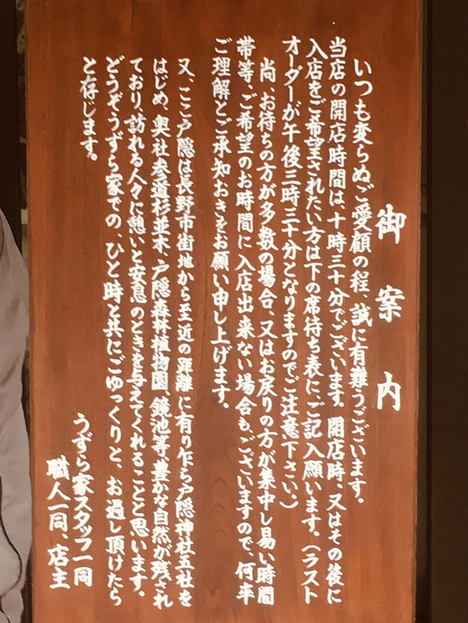 御案内
いつも変らぬご愛顧の程、誠に有難うございます。
当店の開店時間は、十時三十分でございます。開店時、又はその後に
入店をご希望されたい方は下の席待ち表にご記入願います。（ラスト
オーダーが午後三時三十分となりますのでご注意下さい。）
尚、お待ちの方が多数の場合、又はお戻りの方が集中し易い時間
帯等、ご希望のお時間に入店出来ない場合もございますので、何卒
ご理解とご承知おきをお願い申し上げます。
又、ここ戸隠は長野市街地から至近の距離に有り乍ら戸隠神社五社を
はじめ、奥社参道杉並木、戸隠森林植物園、鏡池等、豊かな自然が残され
ており、訪れる人々に憩いと安息のときを与えてくれることと思います。
どうぞうずら家での、ひと時と共にごゆっくりと、お過し頂けたら
と存じます。
うずら家スタッフ一同
職人一同、店主